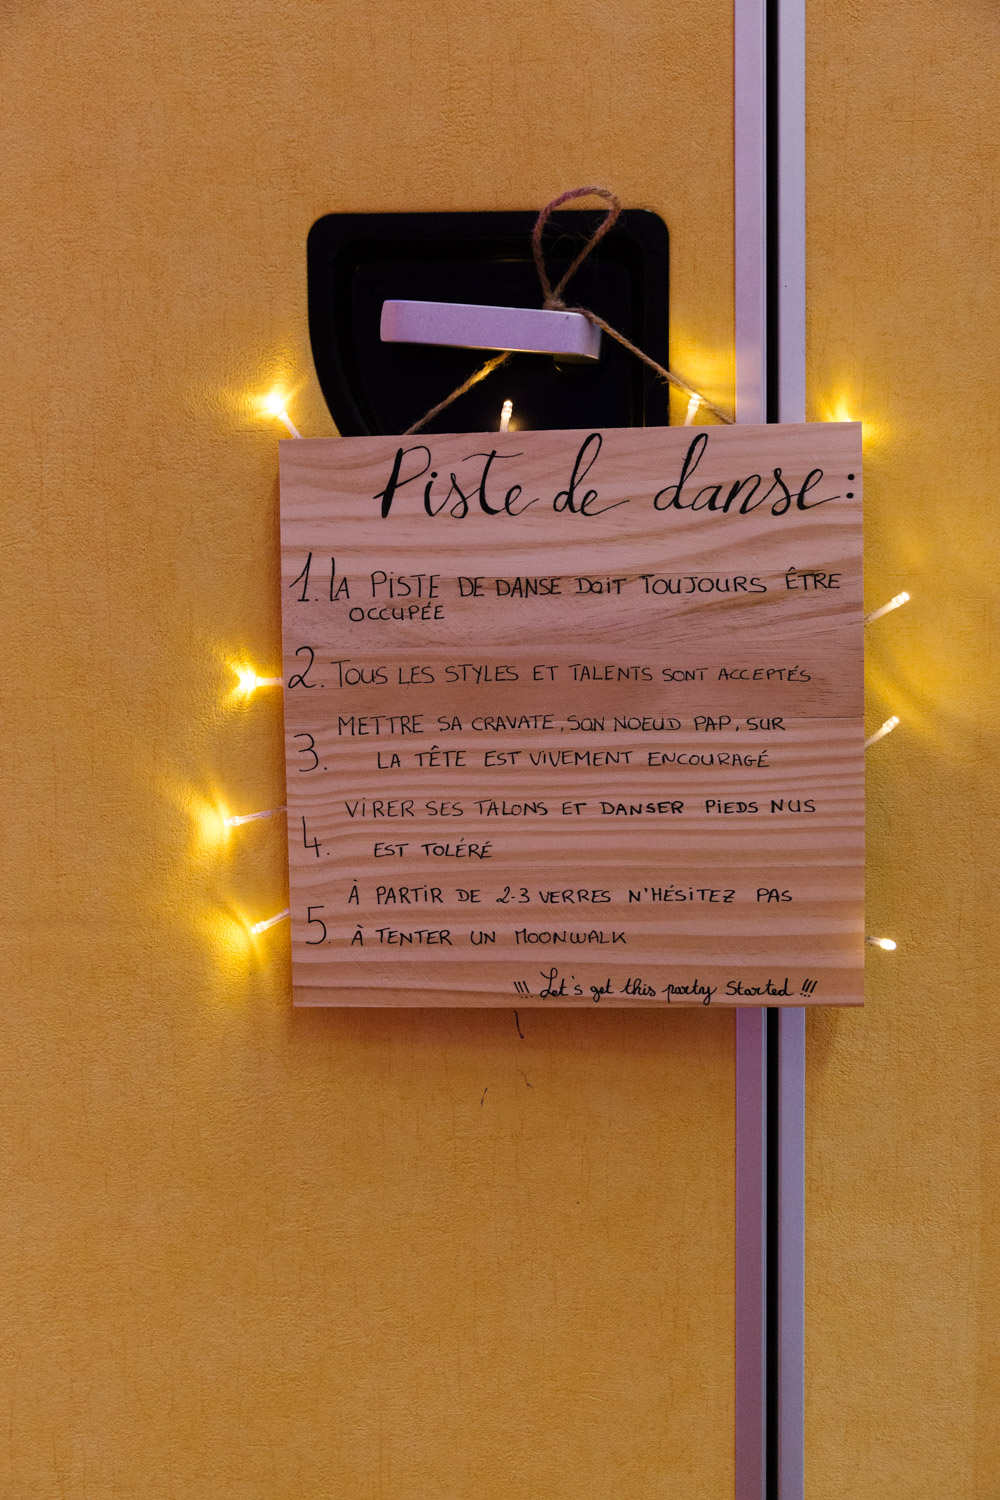 Piste de danse:
1. LA PISTE DE DANSE DOIT TOUJOURS ÊTRE
OCCUPÉE
2. TOUS LES STYLES ET TALENTS SONT ACCEPTÉS
METTRE SA CRAVATE, SON NOEUD PAP, SUR
3. LA TÊTE EST VIVEMENT ENCOURAGÉ
VIRER SES TALONS ET DANSER PIEDS NUS
4. EST TOLÉRÉ
À PARTIR DE 2-3 VERRES N'HÉSITEZ PAS
5. À TENTER UN MOONWALK
!!! Let's get this party Started !!!